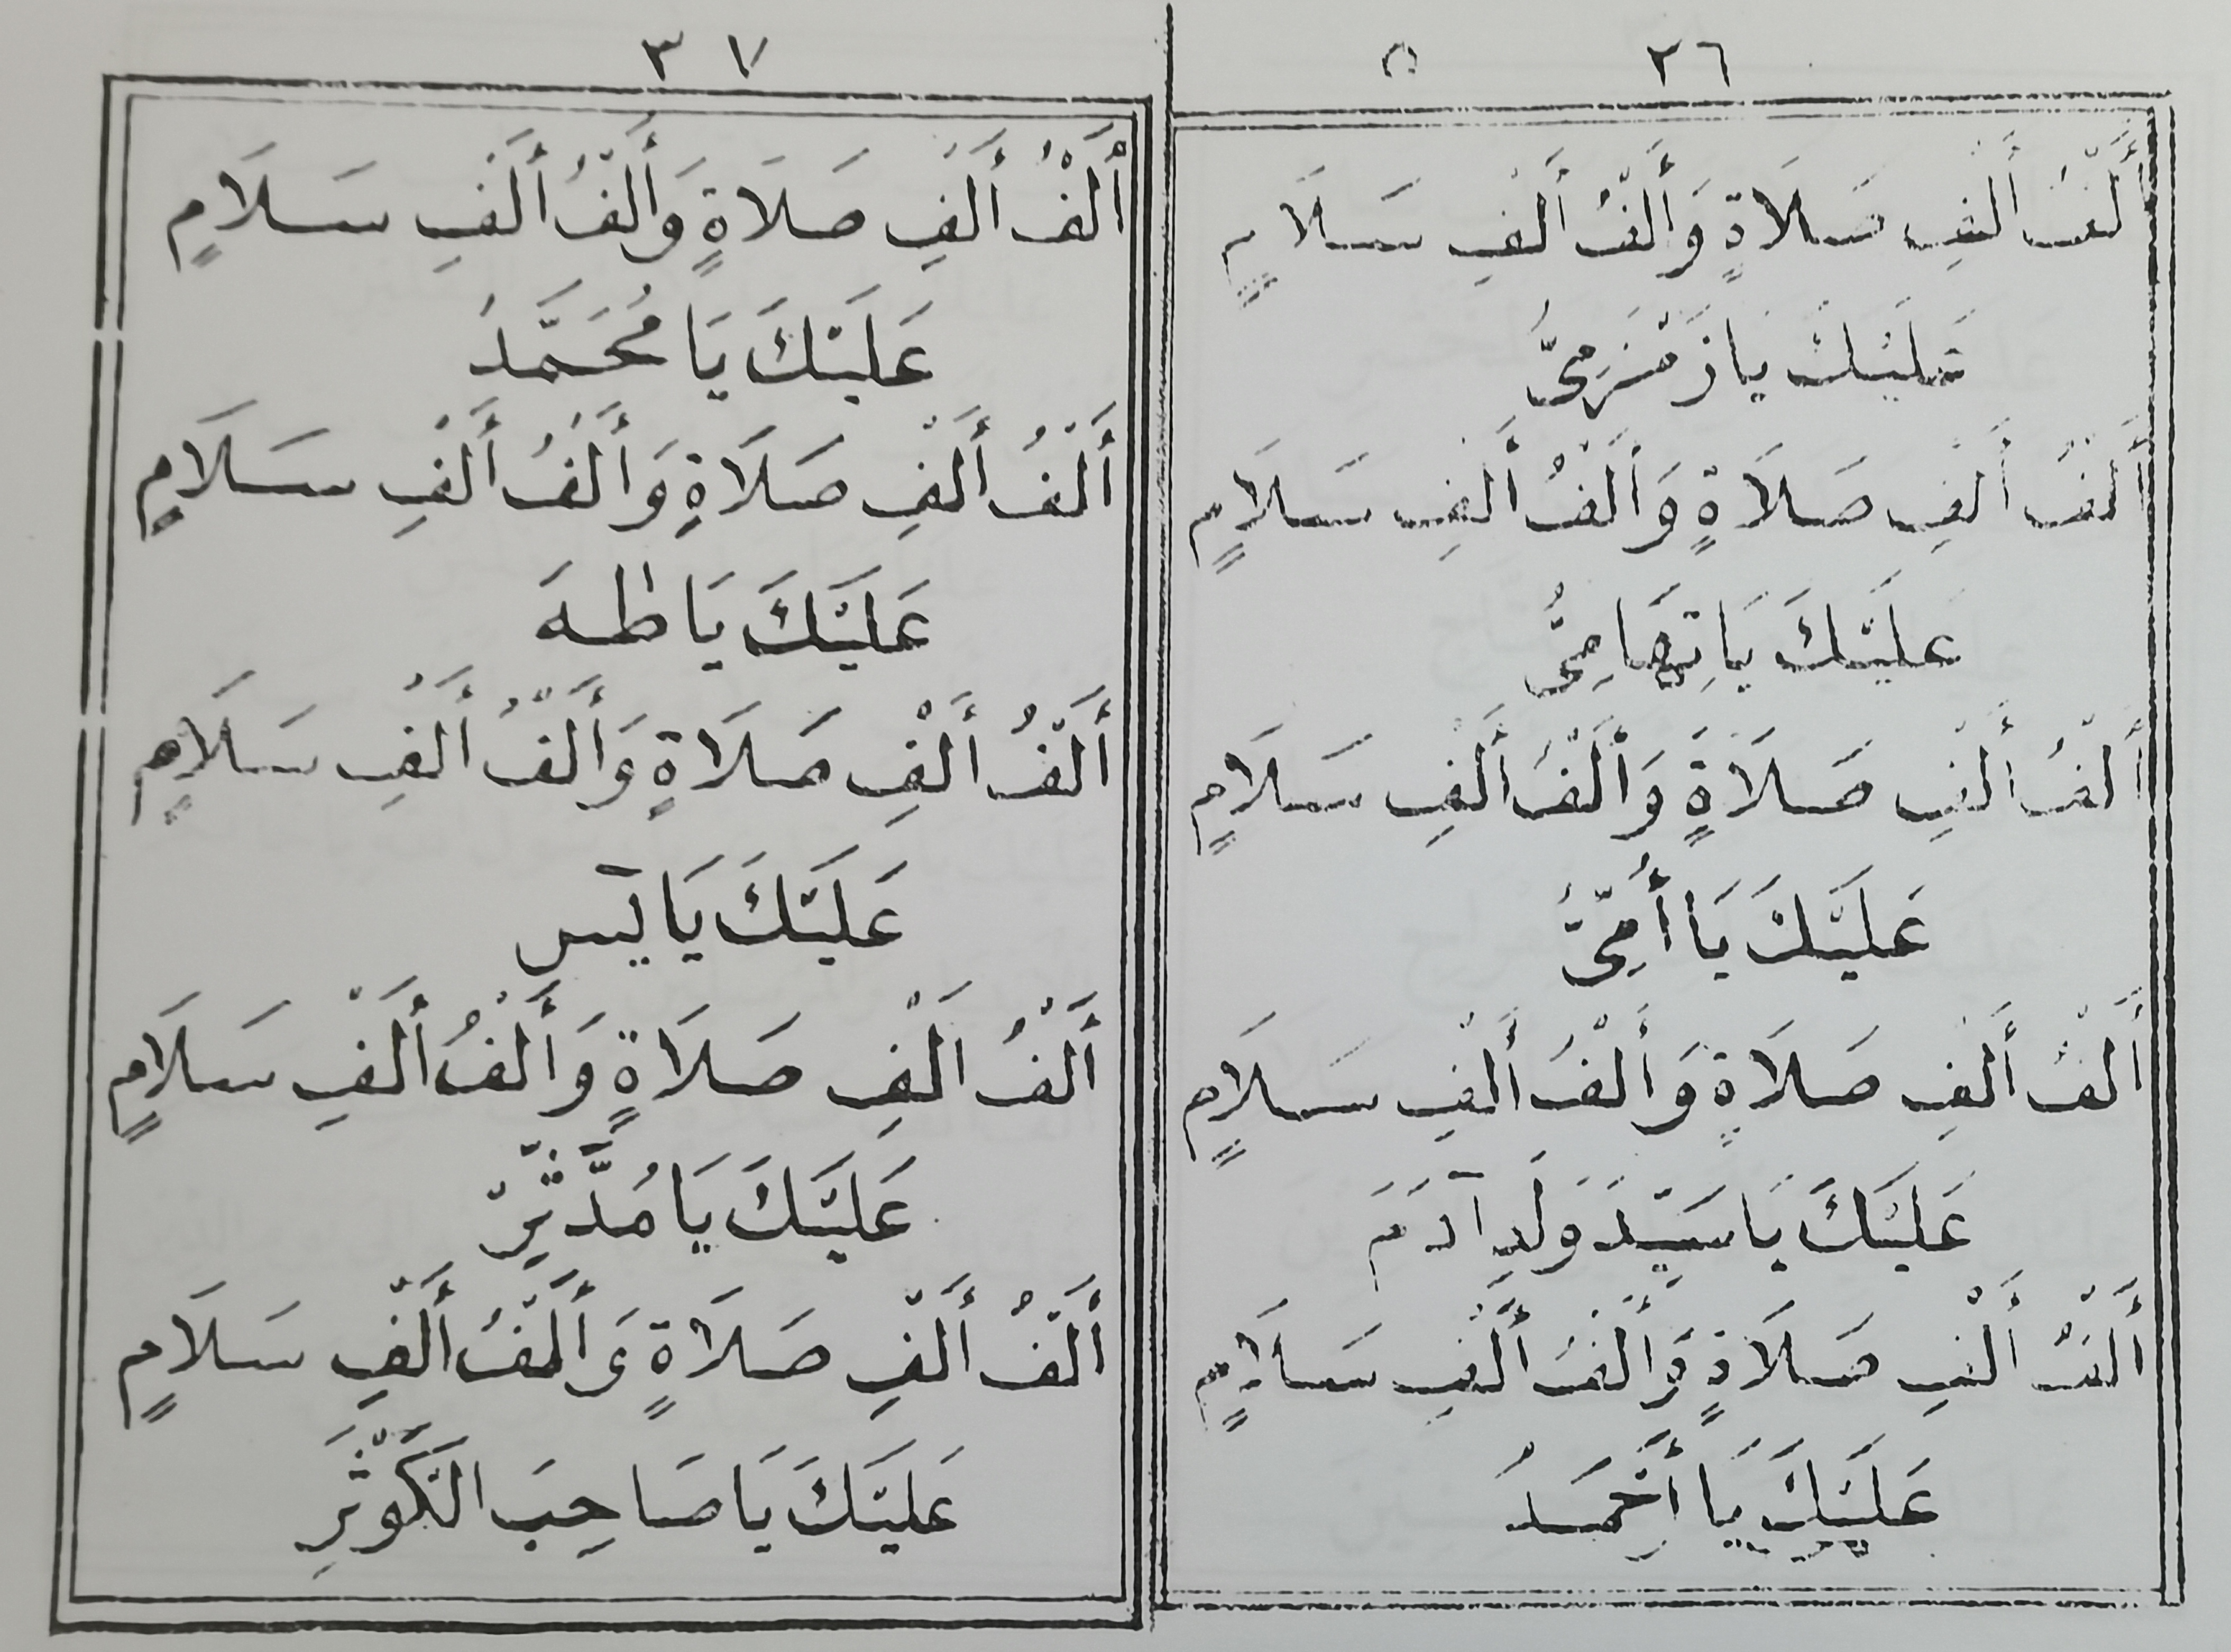 ٣٦
أَلْفُ أَلْفِ صَلَاةٍ وَأَلْفُ أَلْفِ سَلَامٍ
عَلَيْكَ يَا زَمْزَمِىُّ
أَلْفُ أَلْفِ صَلَاةٍ وَأَلْفُ أَلْفِ سَلَامٍ
عَلَيْكَ يَا تِهَامِىُّ
أَلْفُ أَلْفِ صَلَاةٍ وَأَلْفُ أَلْفِ سَلَامٍ
عَلَيْكَ يَا أُمِّىُّ
أَلْفُ أَلْفِ صَلَاةٍ وَأَلْفُ أَلْفِ سَلَامٍ
عَلَيْكَ يَا سَيِّدَ وَلَدِ آدَمَ
أَلْفُ أَلْفِ صَلَاةٍ وَأَلْفُ أَلْفِ سَلَامٍ
عَلَيْكَ يَا أَحْمَدُ
٣٧
أَلْفُ أَلْفِ صَلَاةٍ وَأَلْفُ أَلْفِ سَلَامٍ
عَلَيْكَ يَا مُحَمَّدُ
أَلْفُ أَلْفِ صَلَاةٍ وَأَلْفُ أَلْفِ سَلَامٍ
عَلَيْكَ يَا طٰهَ
أَلْفُ أَلْفِ صَلَاةٍ وَأَلْفُ أَلْفِ سَلَامٍ
عَلَيْكَ يَا يٓس
أَلْفُ أَلْفِ صَلَاةٍ وَأَلْفُ أَلْفِ سَلَامٍ
عَلَيْكَ يَا مُدَّثِّرُ
أَلْفُ أَلْفِ صَلَاةٍ وَأَلْفُ أَلْفِ سَلَامٍ
عَلَيْكَ يَا صَاحِبَ الْكَوْثَرِ